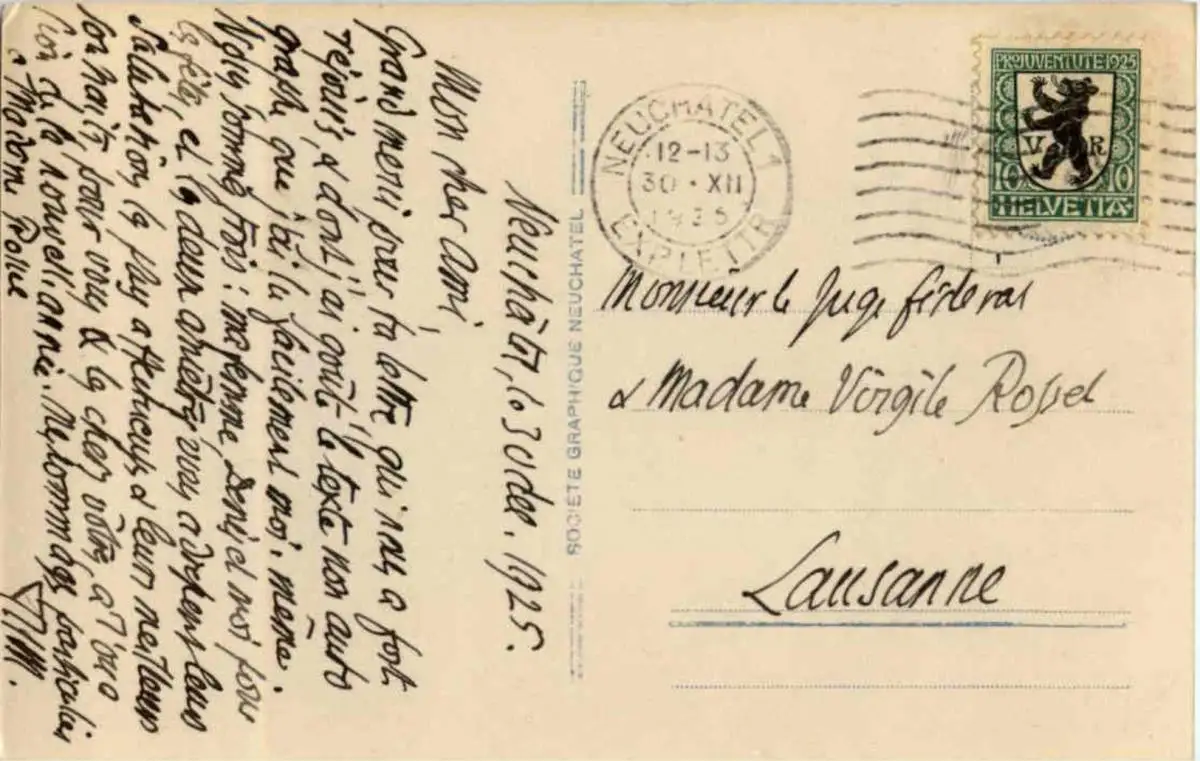 Neuchâtel, le 30 dec. 1925.
Mon cher Ami,
Grand merci pour ta lettre qui nous a fort
réjouis, & dont j'ai goûté le texte non auto
graphe que j'ai lu facilement moi-même.
Nous sommes trois: ma femme, Denis et moi pour
les fêtes, et les deux vous adressent leurs
salutations les plus affectueuses & leurs meilleurs
souhaits pour vous & les chers vôtres, à l'occa
sion de la nouvelle année. Mes hommages particuliers
à Madame
SOCIÉTÉ GRAPHIQUE NEUCHATEL
NEUCHATEL 1
12-13
30·XII
1925
EXP. LETTR.
PRO JUVENTUTE 1925
V R
10 10
HELVETIA
Monsieur le Juge fédéral
& Madame Virgile Rossel
Lausanne